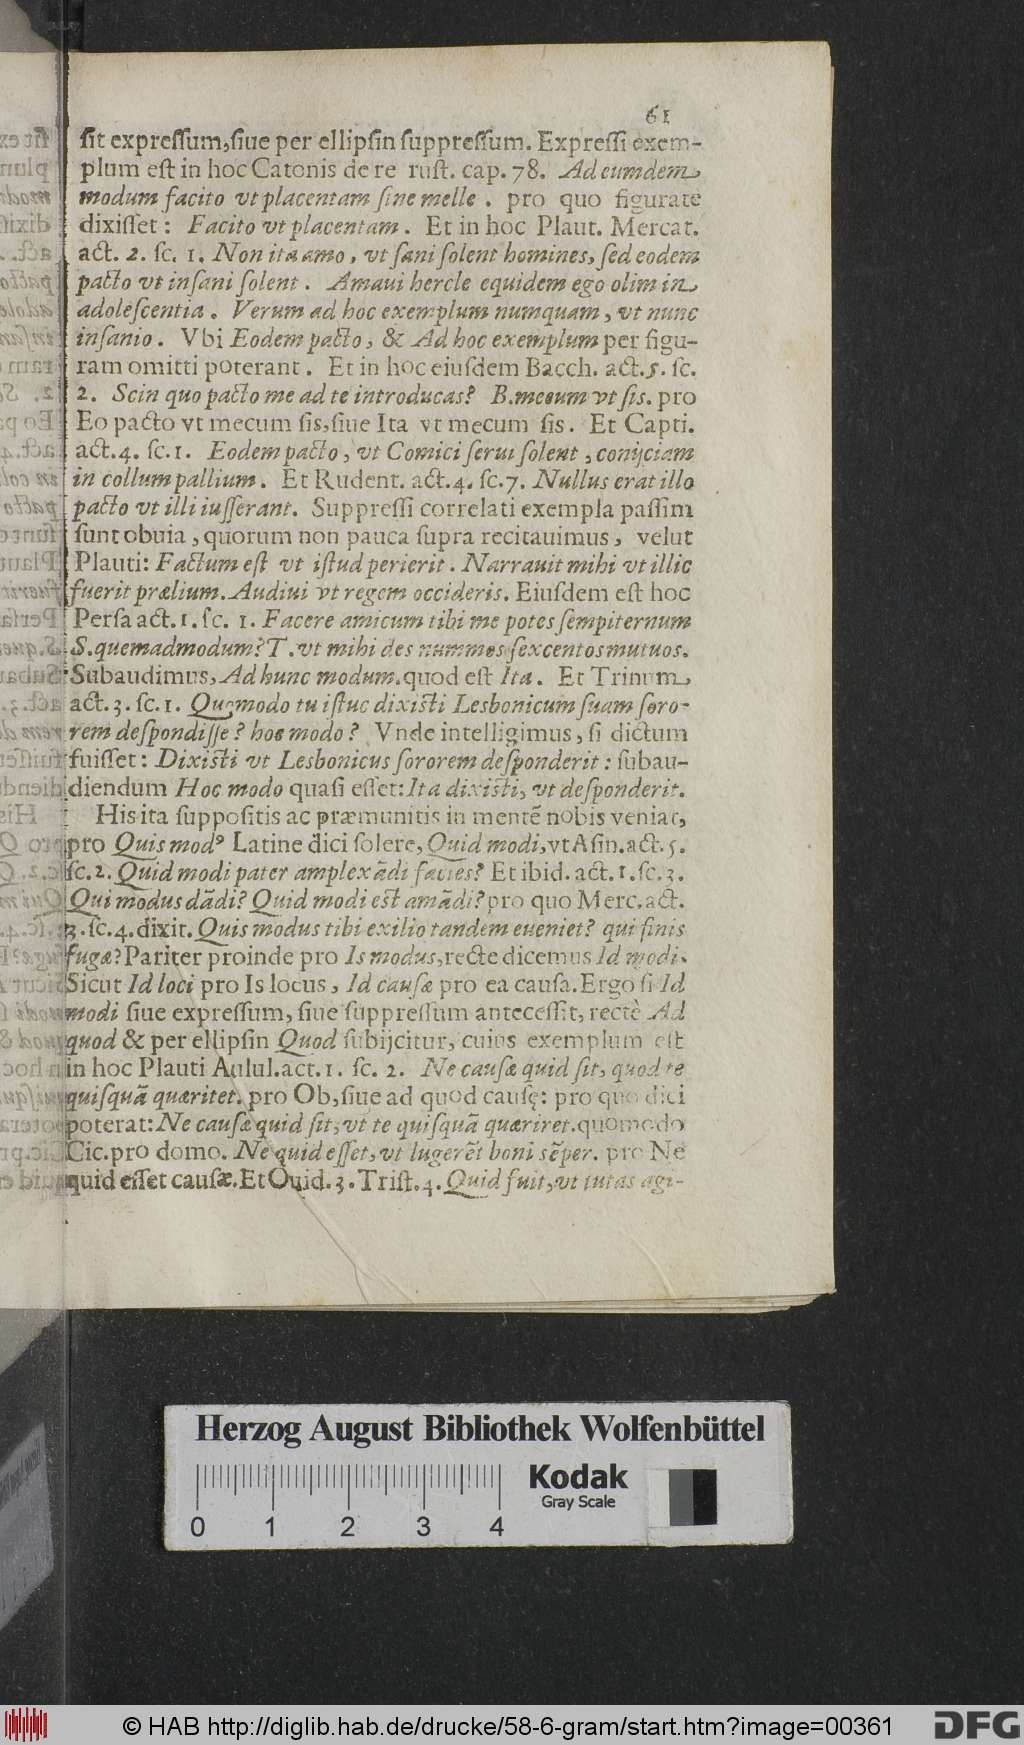 61
sit expressum, siue per ellipsin suppressum. Expressi exem-
plum est in hoc Catonis de re rust. cap. 78. Ad eumdem
modum facito vt placentam sine melle. pro quo figurate
dixisset: Facito vt placentam. Et in hoc Plaut. Mercat.
act. 2. sc. 1. Non ita amo, vt sani solent homines, sed eodem
pacto vt insani solent. Amaui hercle equidem ego olim in
adolescentia. Verum ad hoc exemplum numquam, vt nunc
insanio. Vbi Eodem pacto, & Ad hoc exemplum per figu-
ram omitti poterant. Et in hoc eiusdem Bacch. act. 5. sc.
2. Scin quo pacto me ad te introducas? B. mecum vt sis. pro
Eo pacto vt mecum sis, siue Ita vt mecum sis. Et Capti.
act. 4. sc. 1. Eodem pacto, vt Comici serui solent, conijciam
in collum pallium. Et Rudent. act. 4. sc. 7. Nullus erat illo
pacto vt illi iusserant. Suppressi correlati exempla passim
sunt obuia, quorum non pauca supra recitauimus, velut
Plauti: Factum est vt istud perierit. Narrauit mihi vt illic
fuerit prælium. Audiui vt regem occideris. Eiusdem est hoc
Persa act. 1. sc. 1. Facere amicum tibi me potes sempiternum
S. quemadmodum? T. vt mihi des nummos sexcentos mutuos.
Subaudimus, Ad hunc modum. quod est Ita. Et Trinum
act. 3. sc. 1. Quomodo tu istuc dixisti Lesbonicum suam soro-
rem despondisse? hoc modo? Vnde intelligimus, si dictum
fuisset: Dixisti vt Lesbonicus sororem desponderit: subau-
diendum Hoc modo quasi esset: Ita dixisti, vt desponderit.
His ita suppositis ac præmunitis in mentē nobis veniat,
pro Quis modꝰ Latine dici solere, Quid modi, vt Asin. act. 5.
sc. 2. Quid modi pater amplexādi facies? Et ibid. act. 1. sc. 3.
Qui modus dādi? Quid modi est amādi? pro quo Merc. act.
3. sc. 4. dixit. Quis modus tibi exilio tandem eueniet? qui finis
fugæ? Pariter proinde pro Is modus, recte dicemus Id modi.
Sicut Id loci pro Is locus, Id causæ pro ea causa. Ergo si Id
modi siue expressum, siue suppressum antecessit, rectè Ad
quod & per ellipsin Quod subijcitur, cuius exemplum est
in hoc Plauti Aulul. act. 1. sc. 2. Ne causæ quid sit, quod te
quisquā quæritet. pro Ob, siue ad quod causę: pro quo dici
poterat: Ne causæ quid sit, vt te quisquā quæriret. quomodo
Cic. pro domo. Ne quid esset, vt lugerēt boni sēper. pro Ne
quid esset causæ. Et Ouid. 3. Trist. 4. Quid fuit, vt tutas agi-
Herzog August Bibliothek Wolfenbüttel
Kodak
Gray Scale
0 1 2 3 4
© HAB http://diglib.hab.de/drucke/58-6-gram/start.htm?image=00361
DFG